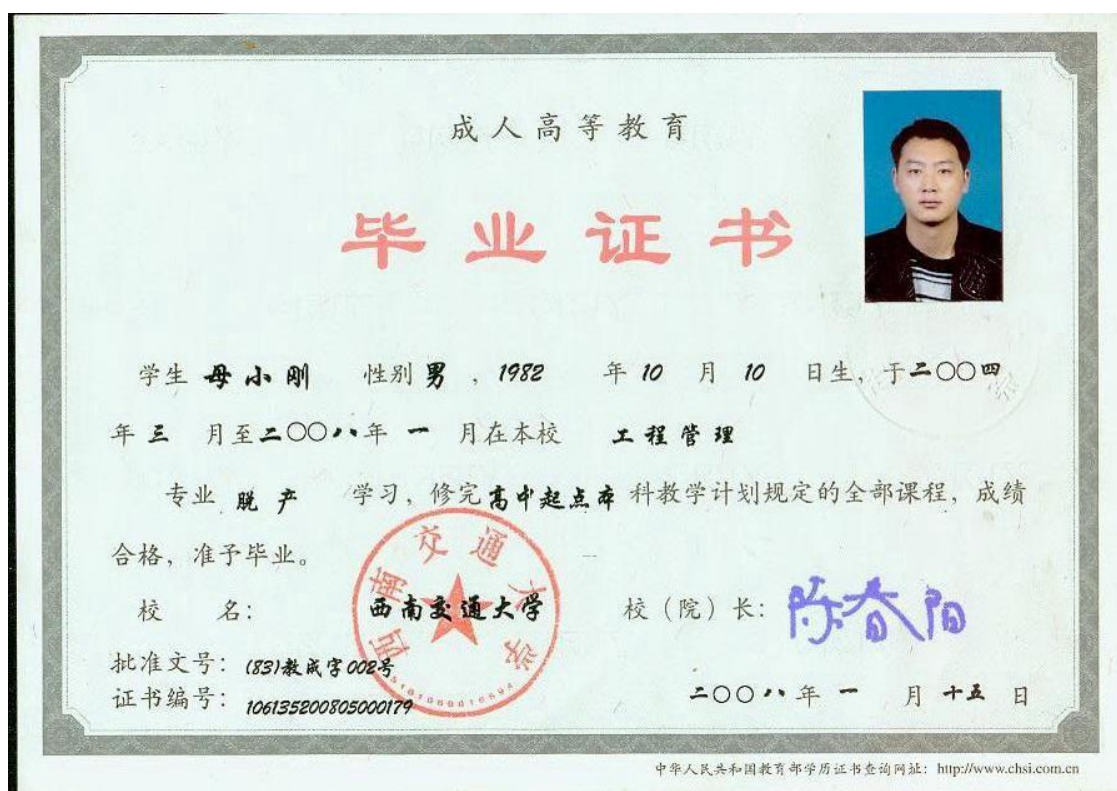 成人高等教育
毕业证书
学生 母小刚 性别 男 ，1982 年 10 月 10 日生，于二〇〇四
年 三 月至二〇〇八年 一 月在本校 工程管理
专业 脱产 学习，修完高中起点本科教学计划规定的全部课程，成绩
合格，准予毕业。
校 名： 西南交通大学 校（院）长：陈春阳
西南交通大学
批准文号：(83)教成字002号
证书编号：106135200805000179
二〇〇八年 一 月 十五 日
中华人民共和国教育部学历证书查询网址：http://www.chsi.com.cn